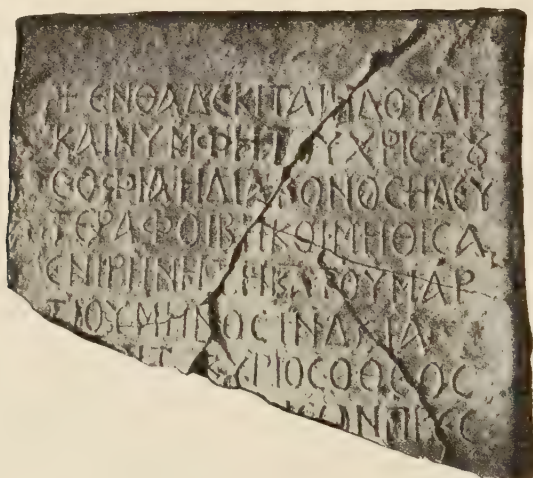 + ΕΝΘΑΔΕΚΙΤΑΙΗΔΟΥΛΗ
ΚΑΙΝΥΜΦΗΤΟΥΧΡΙCΤȢ
CΟΦΙΑΗΔΙΑΚΟΝΟCΗΔΕΥ
ΤΕΡΑΦΟΙΒΗΚΟΙΜΗΘΙCΑ
ΕΝΙΡΗΝΗΤΗΚΑΤΟΥΜΑΡ
ΤΙΟΥΜΗΝΟCΙΝΔΙΑ
ΚΥΡΙΟCΟΘΕΟC
ΩΝΠΡΕC